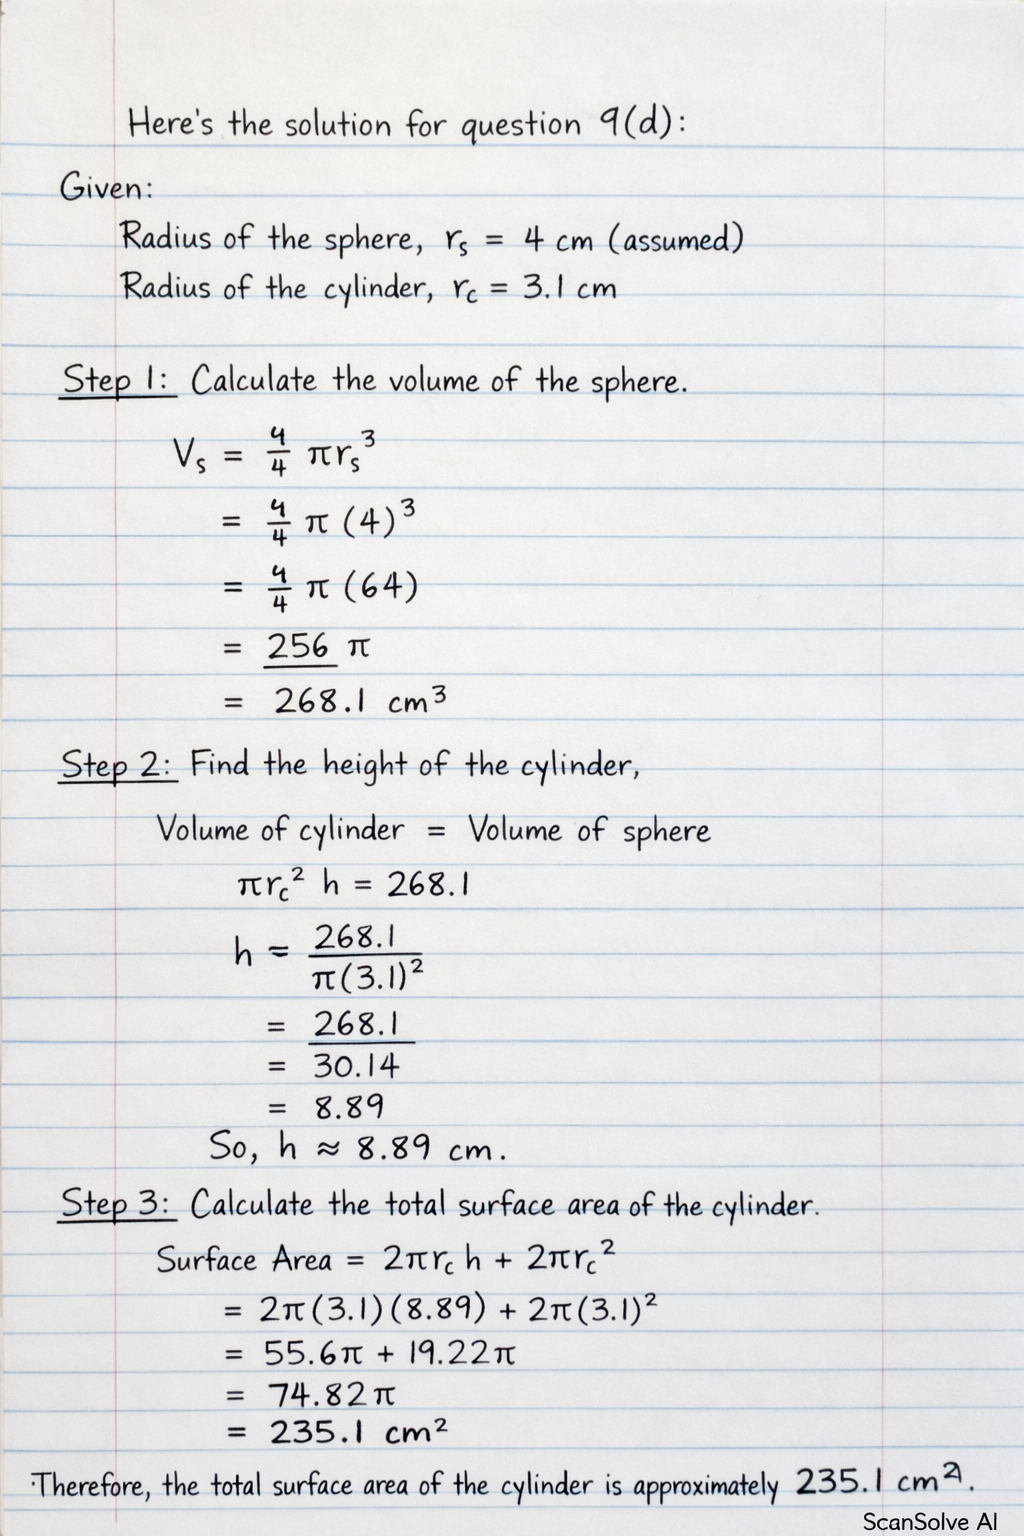 Here's the solution for question 9(d):
Given:
Radius of the sphere, rₛ = 4 cm (assumed)
Radius of the cylinder, r_c = 3.1 cm
Step 1: Calculate the volume of the sphere.
Vₛ = 4/4 πrₛ³
= 4/4 π (4)³
= 4/4 π (64)
= 256 π
= 268.1 cm³
Step 2: Find the height of the cylinder,
Volume of cylinder = Volume of sphere
πr_c² h = 268.1
h = 268.1 / π(3.1)²
= 268.1
= 30.14
= 8.89
So, h ≈ 8.89 cm.
Step 3: Calculate the total surface area of the cylinder.
Surface Area = 2πr_c h + 2πr_c²
= 2π(3.1)(8.89) + 2π(3.1)²
= 55.6π + 19.22π
= 74.82π
= 235.1 cm²
Therefore, the total surface area of the cylinder is approximately 235.1 cm².
ScanSolve AI